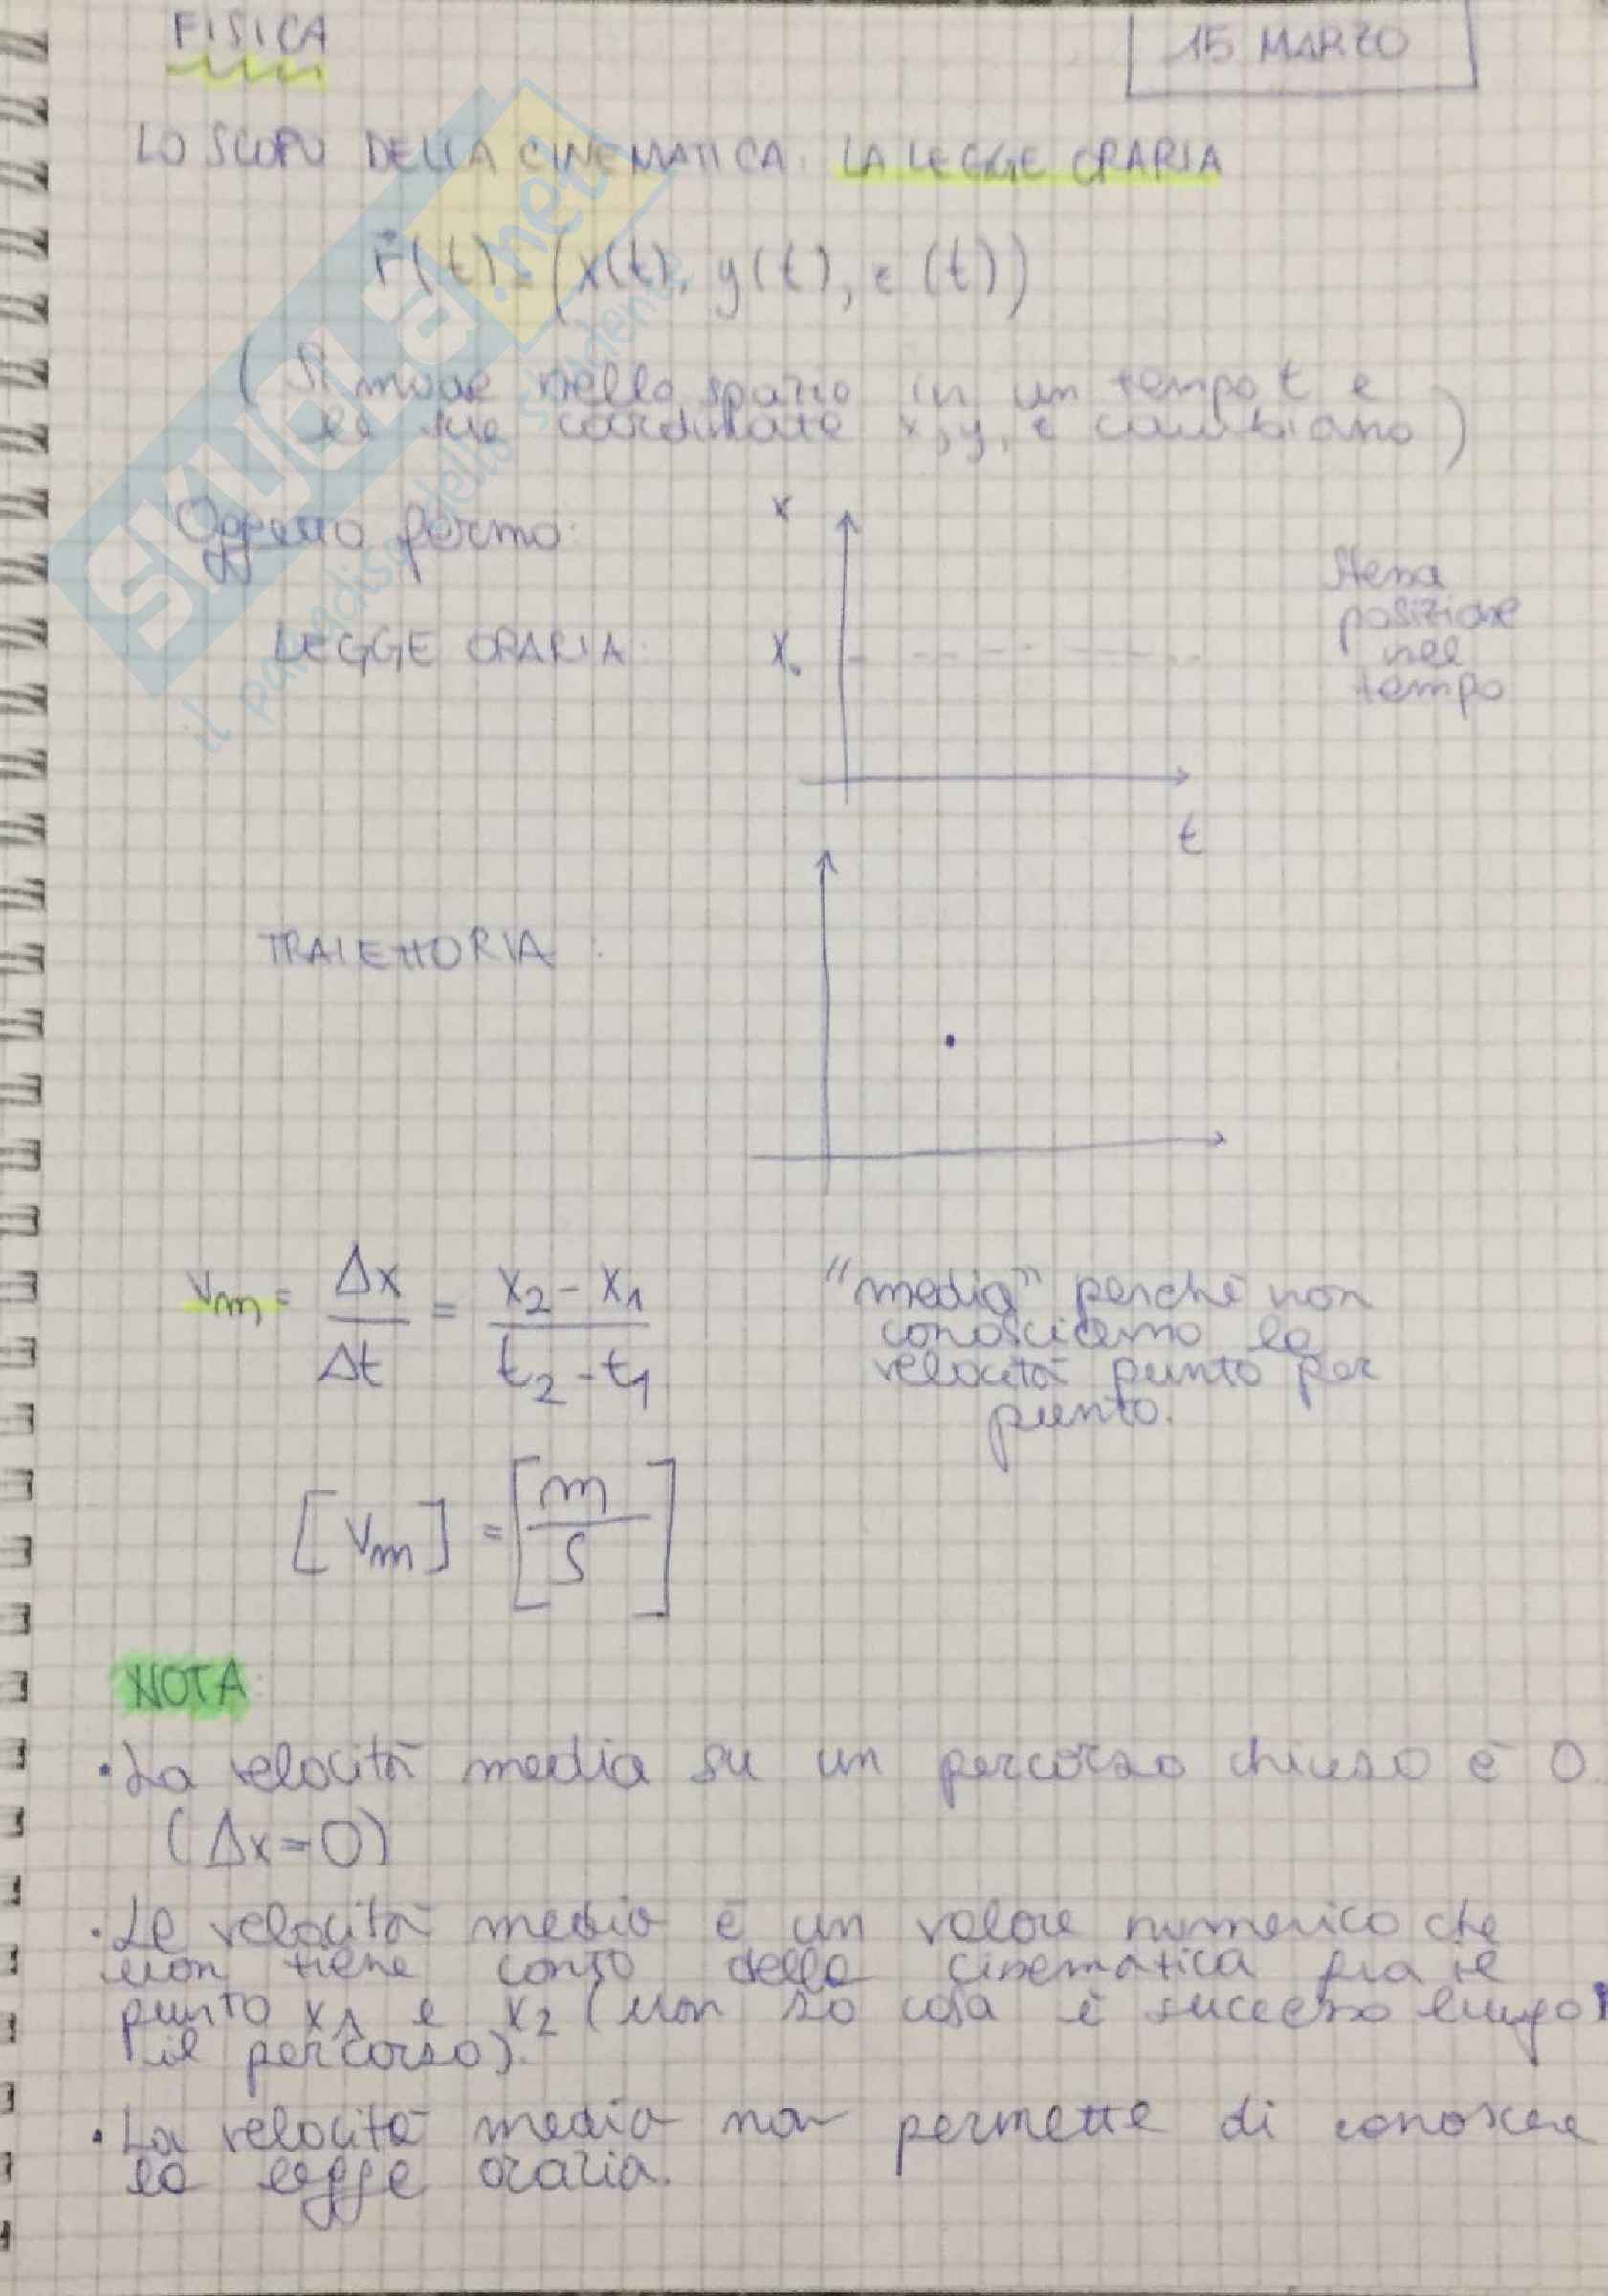 FISICA
15 MARZO
LO SCOPO DELLA CINEMATICA: LA LEGGE ORARIA
r⃗(t) = (x(t), y(t), z(t))
(Si muove nello spazio in un tempo t e
le sue coordinate x, y, z cambiano)
Oggetto fermo:
x
LEGGE ORARIA:
x₀
stessa
posizione
nel
tempo
t
TRAIETTORIA:
vm = Δx/Δt = (x₂ - x₁)/(t₂ - t₁)
"media" perchè non
conosciamo la
velocità punto per
punto.
[vm] = [m/s]
NOTA
• La velocità media su un percorso chiuso è 0.
(Δx=0)
• La velocità media è un valore numerico che
non tiene conto della cinematica fra il
punto x₁ e x₂ (non so cosa è successo lungo
il percorso).
• La velocità media non permette di conoscere
la legge oraria.
SKUOLA.net
il paradiso dello studente